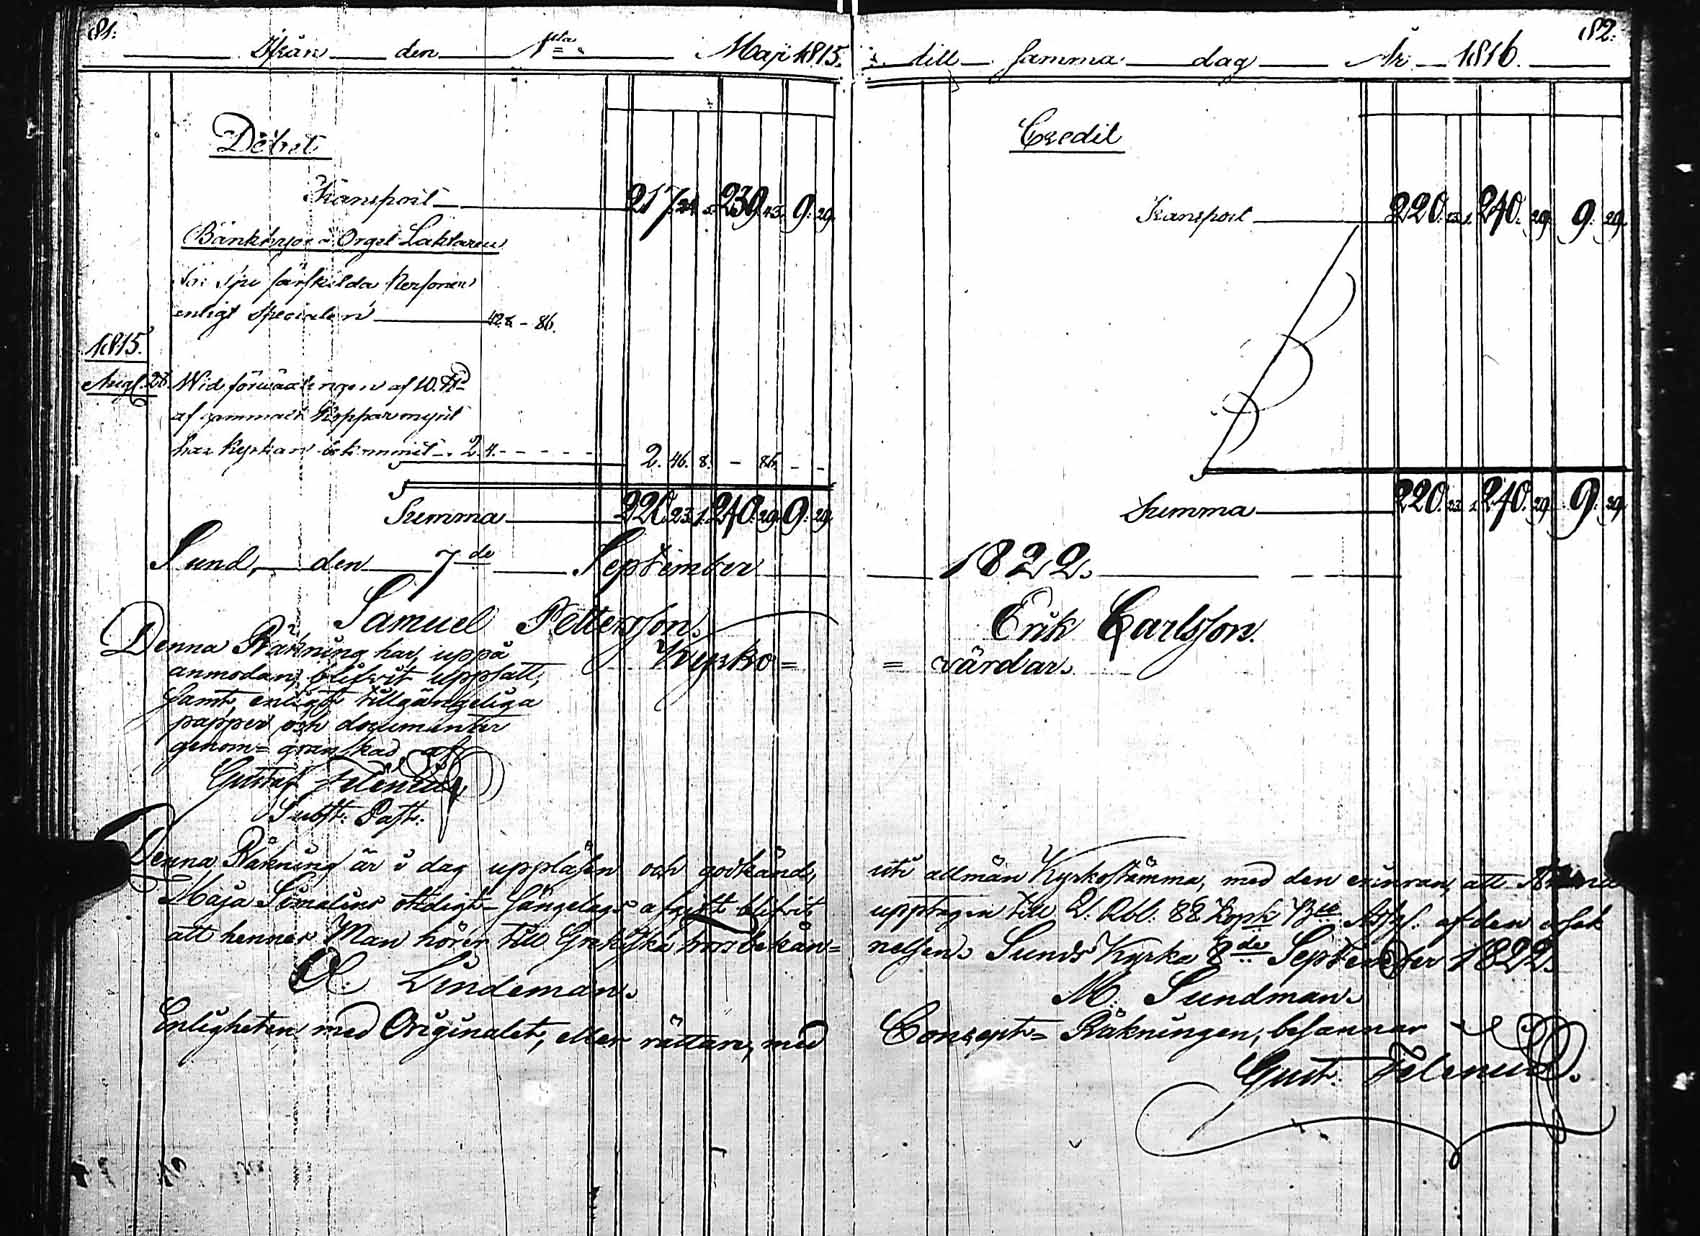 81.
Ifrån den 1sta Maji 1815.
Debet
Transport 217. 239. 43. 9. 29.
Bänkhyror å Orgel Läktaren
för sju särskilda Personer
enligt specialen 42. 8. - 86.
1815.
Aug. 28. Wid förväxlingen af 10.
af gammalt Kopparmynt
har Kyrkan bekommit 2. 4.
2. 46. 8. - 86. - -
Summa 220. 23. 1. 240. 29. 9. 29.
Sund, den 7de September
Samuel Pettersson.
Kyrko=
Denna Räkning har, uppå
anmodan, blifvit upprättad,
samt, enligt tillgängeliga
papper och documenter
genom=granskad af
Gustaf
Subst. Past.
Denna Räkning är i dag uppläsen och godkänd,
Maja oltdigt blifvit
att hennes Man hörer till Grekiska trosbekän=
Lindeman.
Enligheten med Originalet, eller rättare, med
82.
till samma dag År 1816.
Credit
Transport 220. 23. 1. 240. 29. 9. 29.
Summa 220. 23. 1. 240. 29. 9. 29.
1822.
Erik Carlsson.
= värdar.
uti allmän Kyrkostämma, med den erinran, att
upptagen till 2. Rbl. 88 Kop. af den orsak
nelsen. Sunds Kyrka 8de September 1822.
M. Sundman.
Concept=Räkningen, besannar
Gust.